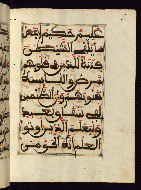 عليم حكيم ليجعل
ما يلقي الشيطن
فتنة للذين في قلوبهم
مرض والقاسية
قلوبهم وإن الظلمين
لفي شقاق بعيد
وليعلم الذين أوتوا
العلم أنه الحق من